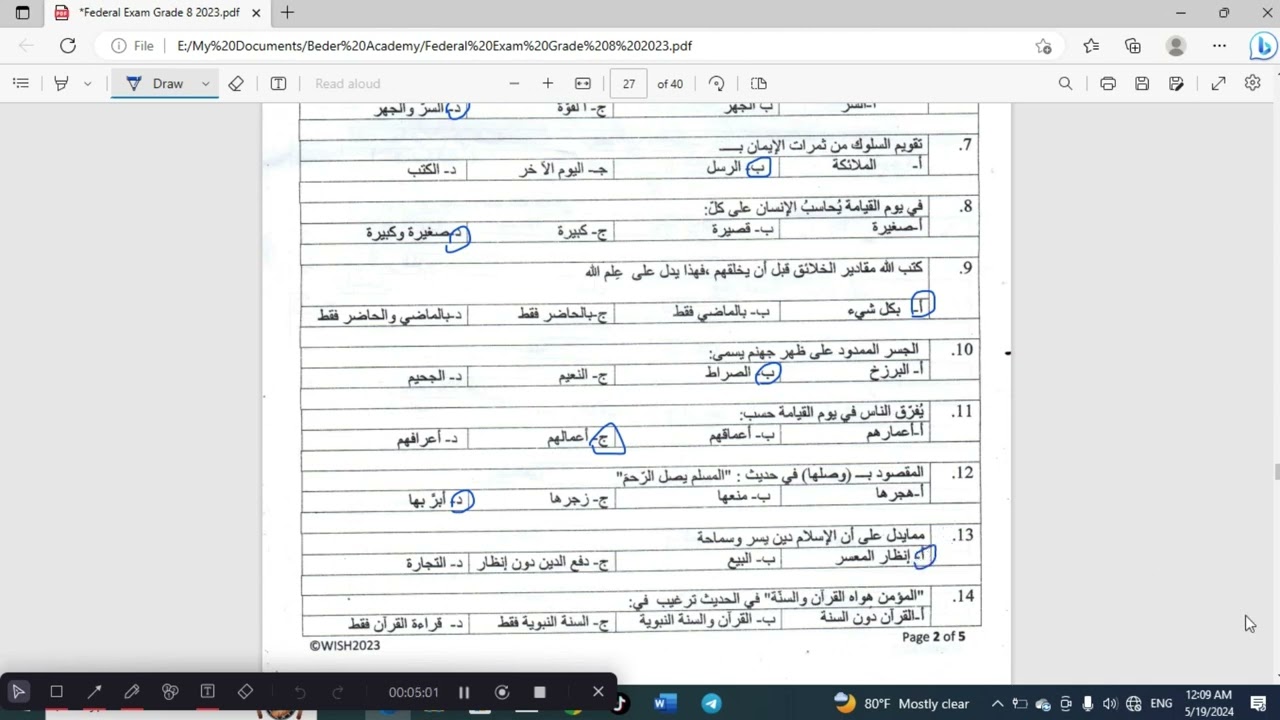 *Federal Exam Grade 8 2023.pdf
File
E:/My%20Documents/Beder%20Academy/Federal%20Exam%20Grade%208%202023.pdf
Draw
Read aloud
27 of 40
أ-السر ب-الجهر ج- القوّة د- السرّ والجهر
7. تقويم السلوك من ثمرات الإيمان بـــ
أ- الملائكة ب- الرسل جـ- اليوم الآخر د- الكتب
8. في يوم القيامة يُحاسبُ الإنسان على كلّ:
أ-صغيرة ب- قصيرة ج- كبيرة د-صغيرة وكبيرة
9. كتب الله مقادير الخلائق قبل أن يخلقهم ،فهذا يدل على عِلم الله
أ- بكل شيء ب- بالماضي فقط ج-بالحاضر فقط د-بالماضي والحاضر فقط
10. الجسر الممدود على ظهر جهنم يسمى:
أ- البرزخ ب- الصراط ج- النعيم د- الجحيم
11. يُفرّق الناس في يوم القيامة حسب:
أ-أعمارهم ب- أعماقهم ج- أعمالهم د- أعرافهم
12. المقصود بـــ (وصلها) في حديث : "المسلم يصل الرّحمَ"
أ-هجرها ب- منعها ج- زجرها د- أبرّ بها
13. ممايدل على أن الإسلام دين يسر وسماحة
أ- إنظار المعسر ب- البيع ج- دفع الدين دون إنظار د- التجارة
14. "المؤمن هواه القرآن والسنّة" في الحديث ترغيب في:
أ-القرآن دون السنة ب- القرآن والسنة النبوية ج- السنة النبوية فقط د- قراءة القرآن فقط
©WISH2023 Page 2 of 5
00:05:01
80°F Mostly clear
ENG
12:09 AM
5/19/2024